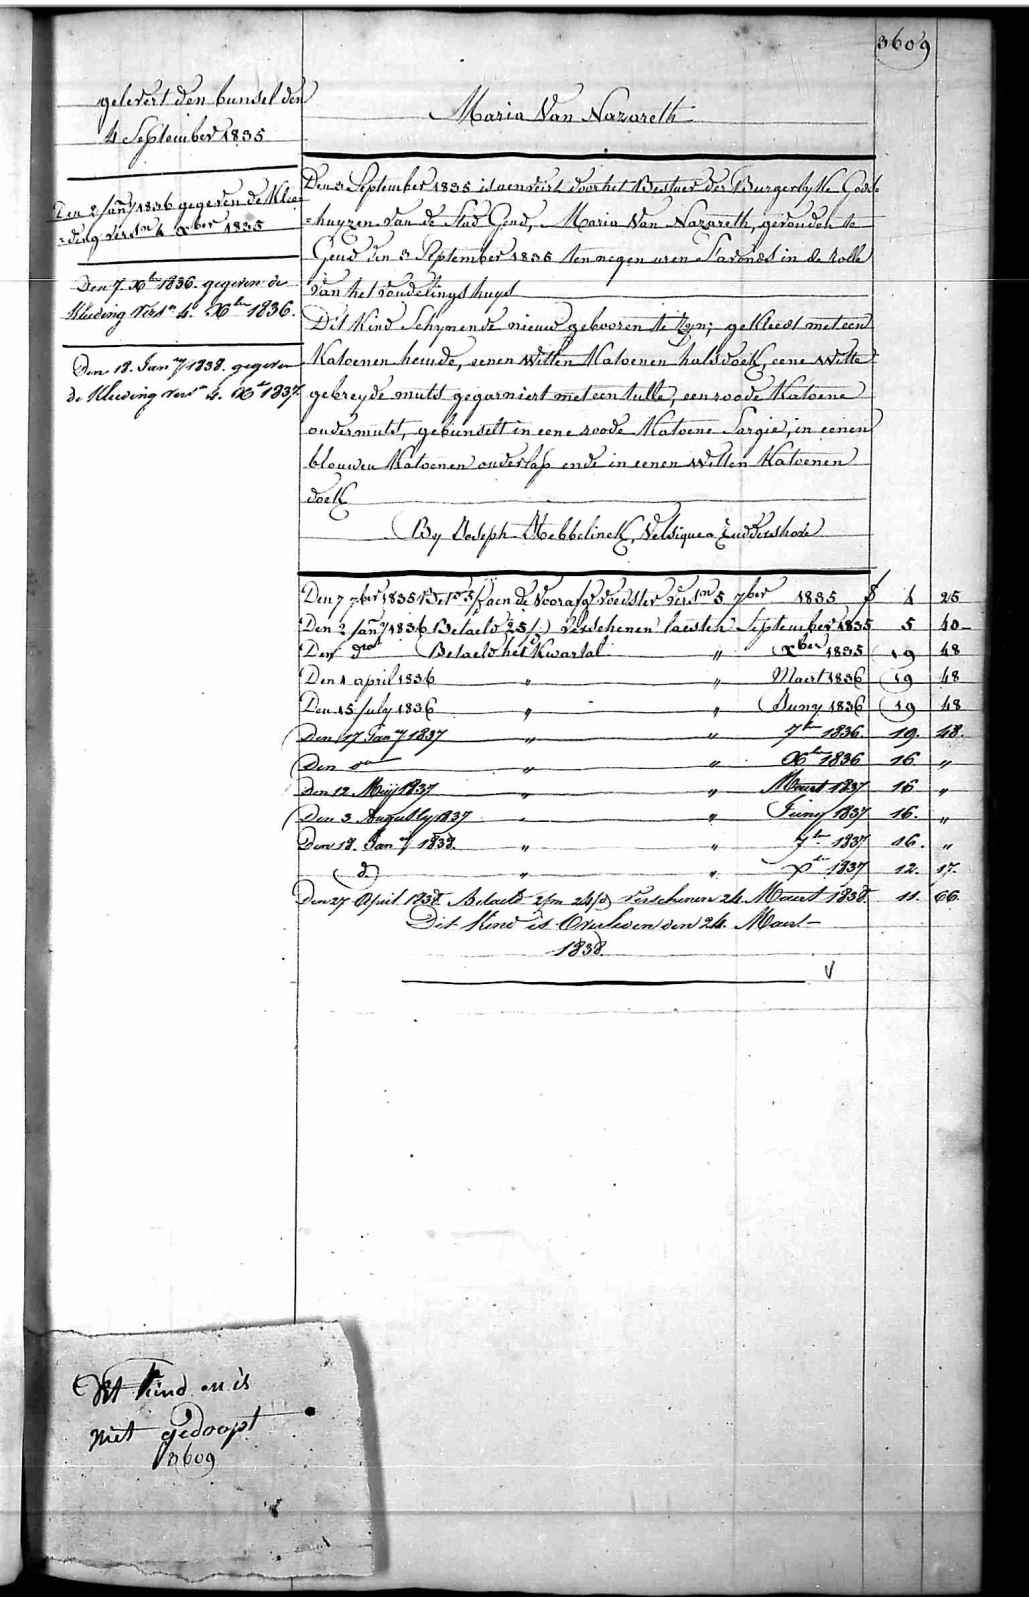 3609
gelevert den bunsel den
4 September 1835
Den 2 Jany 1836 gegeven de Klee-
=ding versn 4 Xber 1835
Den 7 Xbr 1836. gegeven de
Kleeding versn 4 Xbr 1836.
Den 18. Jany 1838. gegeven
de Kleeding versn 4. Xr 1837
Maria Van Nazareth
Den 3 September 1835 is aenveirt door het Bestuer der Burgerlyke Gods
=huyzen van de Stad Gend, Maria Van Nazareth, gevonden te
Gend den 3 September 1835 ten negen uren s'avonds in de rolle
van het vondelings huys
Dit Kind Schynende nieuw gebooren te Zyn; gekleed met een
Katoenen hemde, eenen witten Katoenen halsdoek, eene witte
gebreyde muts gegarniert met een tulle, een roode Katoene
ondermuts, gebunselt in eene roode Katoene Sargie, in eenen
blouwen Katoenen onderlap ende in eenen witten Katoenen
doek
By Joseph Hebbelinck, Velsique Ruddershove
Den 7 7ber 1835 aen de Voorafg voedster versn 5 7ber 1835 4 25
Den 2 Jany 1836 Betaeld 25/d verschenen laesten September 1835 5 40
Den do Betaeld het Kwartal " Xber 1835 19 48
Den 1 april 1836 " " Maert 1836 19 48
Den 15 July 1836 " " Juny 1836 19 48
Den 17 Jany 1837 " " 7br 1836 19. 48.
Den do " " Xbr 1836 16 "
Den 12 Mey 1837 " " Maert 1837 16 "
Den 3 Augusty 1837 " " Juny 1837 16. "
Den 18. Jany 1838. " " 7br 1837 16. "
(d.) " " Xbr 1837 12. 17.
Den 27 April 1838 Betaeld 2/m 24/d verschenen 24 Maert 1838 11. 66.
Dit Kind is Overleden den 24. Maert
1838.
V
Dit Kind en is
niet gedoopt
3609